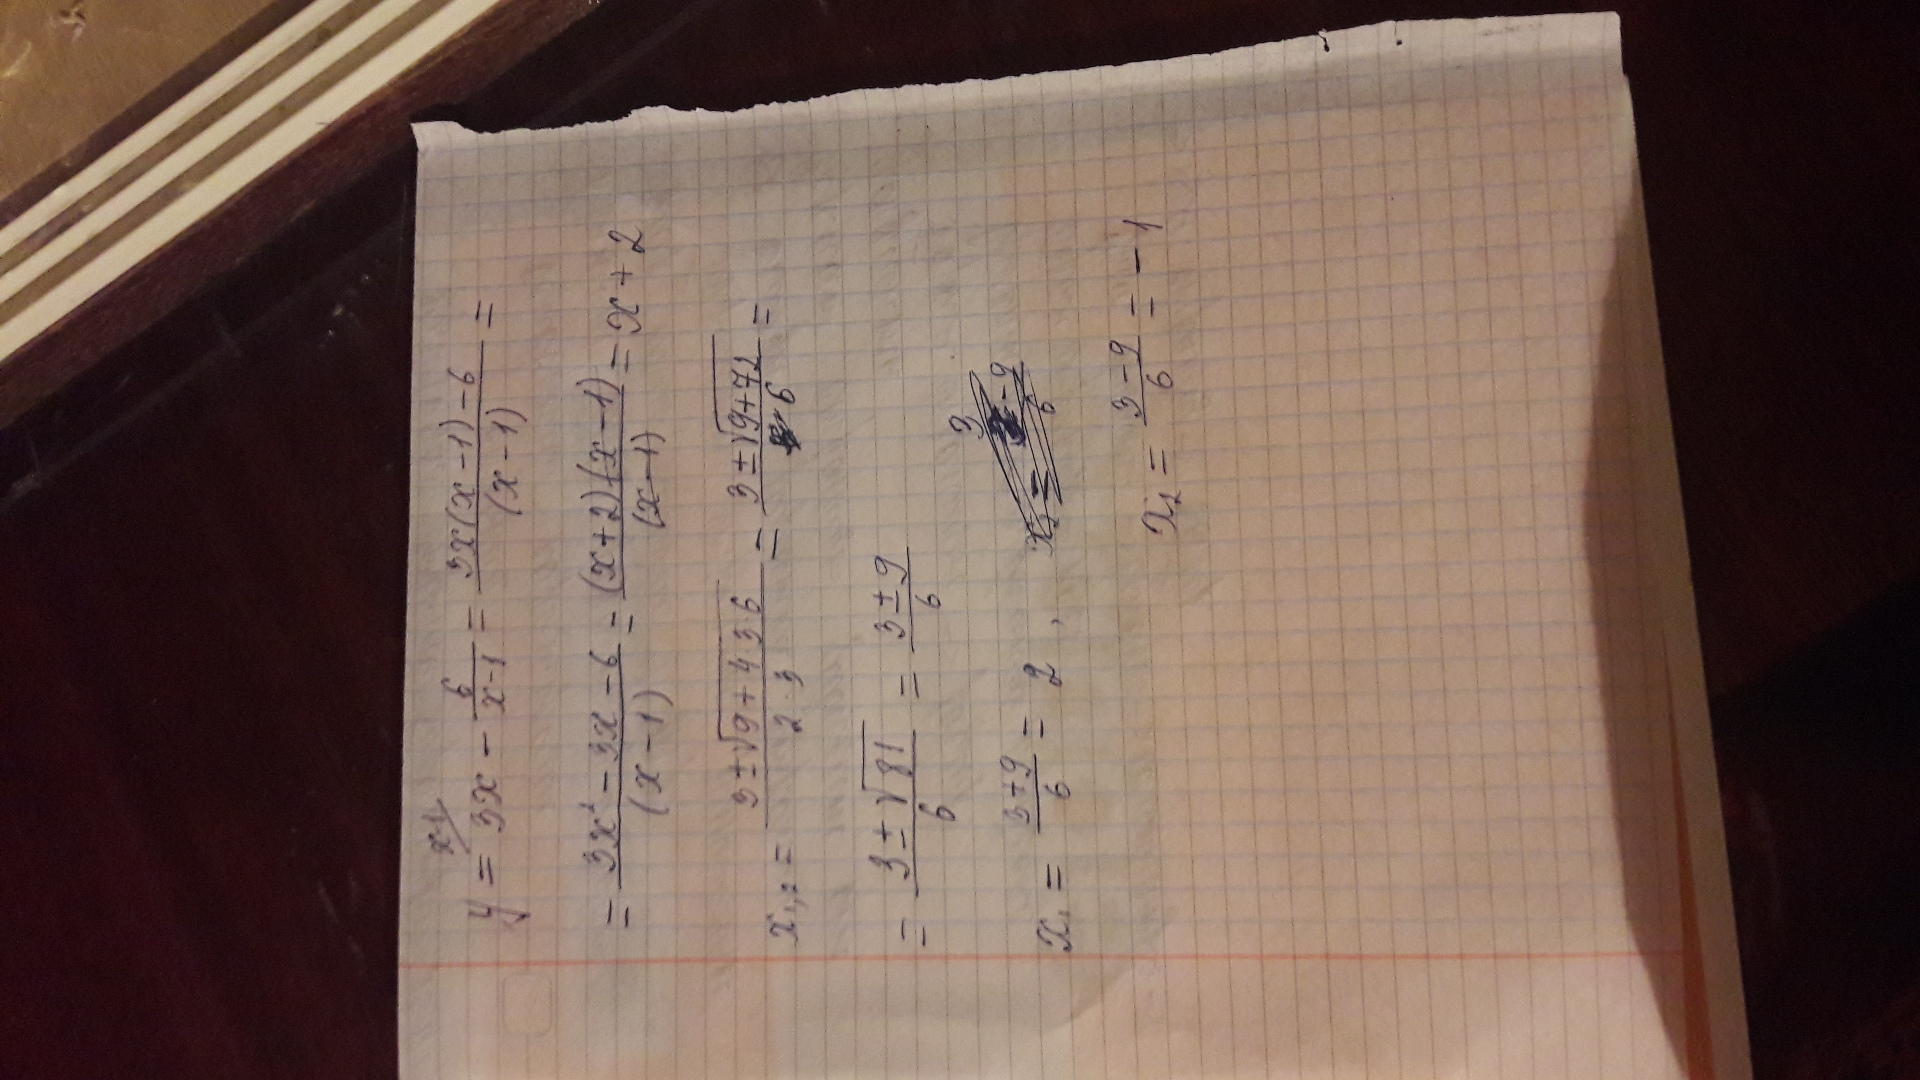 y = 3x - 6/(x-1) = (3x(x-1)-6)/(x-1) =
= (3x² - 3x - 6)/(x-1) = ((x+2)(x-1))/(x-1) = x+2
x₁,₂ = (3±√(9+4·3·6))/(2·3) = (3±√(9+72))/6 =
= (3±√81)/6 = (3±9)/6
x₁ = (3+9)/6 = 2,
x₂ = (3-9)/6 = -1